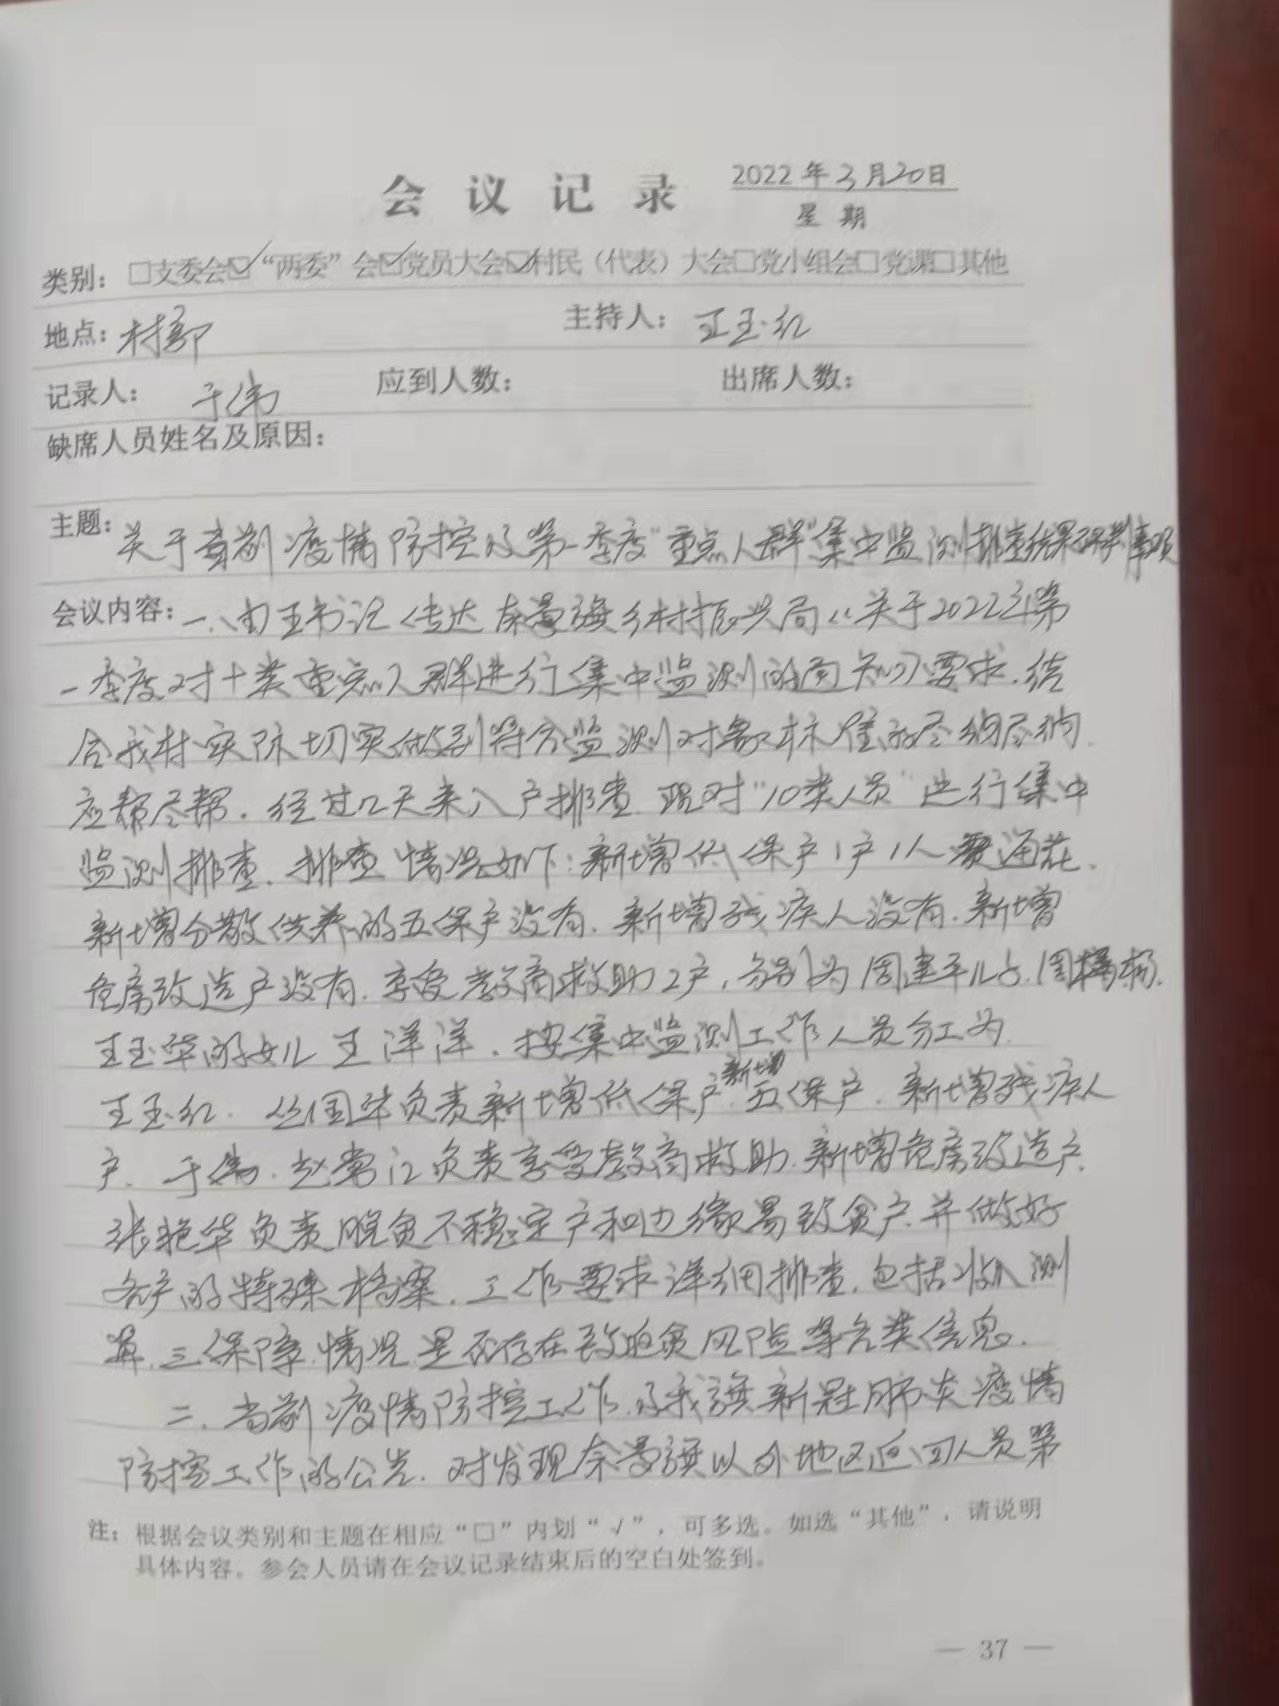 会议记录 2022年3月20日
星期
类别：□支委会☑“两委”会☑党员大会☑村民（代表）大会□党小组会□党课□其他
地点：村部 主持人：王玉红
记录人：于伟 应到人数： 出席人数：
缺席人员姓名及原因：
主题：关于当前疫情防控及第一季度“重点人群”集中监测排查结果 事项
会议内容：一、由王书记传达奈曼旗乡村振兴局《关于2022年第
一季度对十类重点人群进行集中监测的通知》要求，结
合我村实际切实做到符合监测对象标准的尽纳尽纳
应帮尽帮。经过几天来入户排查，现对“10类人员”进行集中
监测排查，排查情况如下：新增低保户1户1人 通花、
新增分散供养的五保户没有，新增残疾人没有，新增
危房改造户没有，享受教育救助2户，分别为周建平儿子周 杨、
王玉华的女儿王洋洋，按集中监测工作人员分工为
王玉红、 国华负责新增低保户、新增五保户、新增残疾人
户、于伟、赵常江负责享受教育救助、新增危房改造户、
张艳华负责脱贫不稳定户和边缘易致贫户，并做好
各户的特殊档案，工作要求详细排查，包括收入测
算，三保障情况，是否存在致返贫风险等各类信息。
二、当前疫情防控工作，及我旗新冠肺炎疫情
防控工作的公告，对发现奈曼旗以外地区返回人员第
注：根据会议类别和主题在相应“□”内划“√”，可多选。如选“其他”，请说明
具体内容。参会人员请在会议记录结束后的空白处签到。
— 37 —